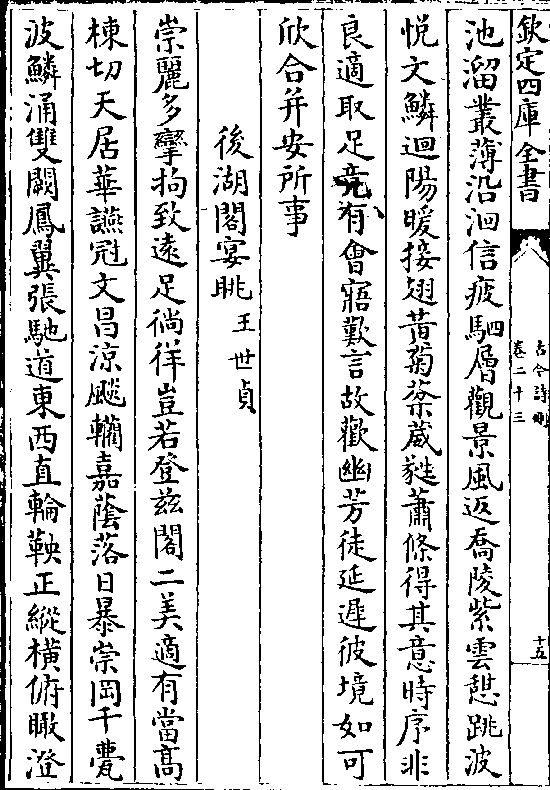 欽定四庫全書
古今詩刪
卷二十三
十五
池溜叢薄沿洄信疲駟層觀景風返喬陵紫雲憇跳波
悦文鱗迴陽暖接翅黄菊蘂葳蕤蕭條得其意時序非
良適取足竟有會寤歎言故歡幽芳徒延遲彼境如可
欣合并安所事
後湖閣宴眺王世貞
崇麗多攣拘致遠足徜徉豈若登兹閣二美適有當髙
棟切天居華讌冠文昌涼飈轥嘉蔭落日暴崇岡千甍
波鱗涌雙闕鳳翼張馳道東西直輪鞅正縱横俯瞰澄